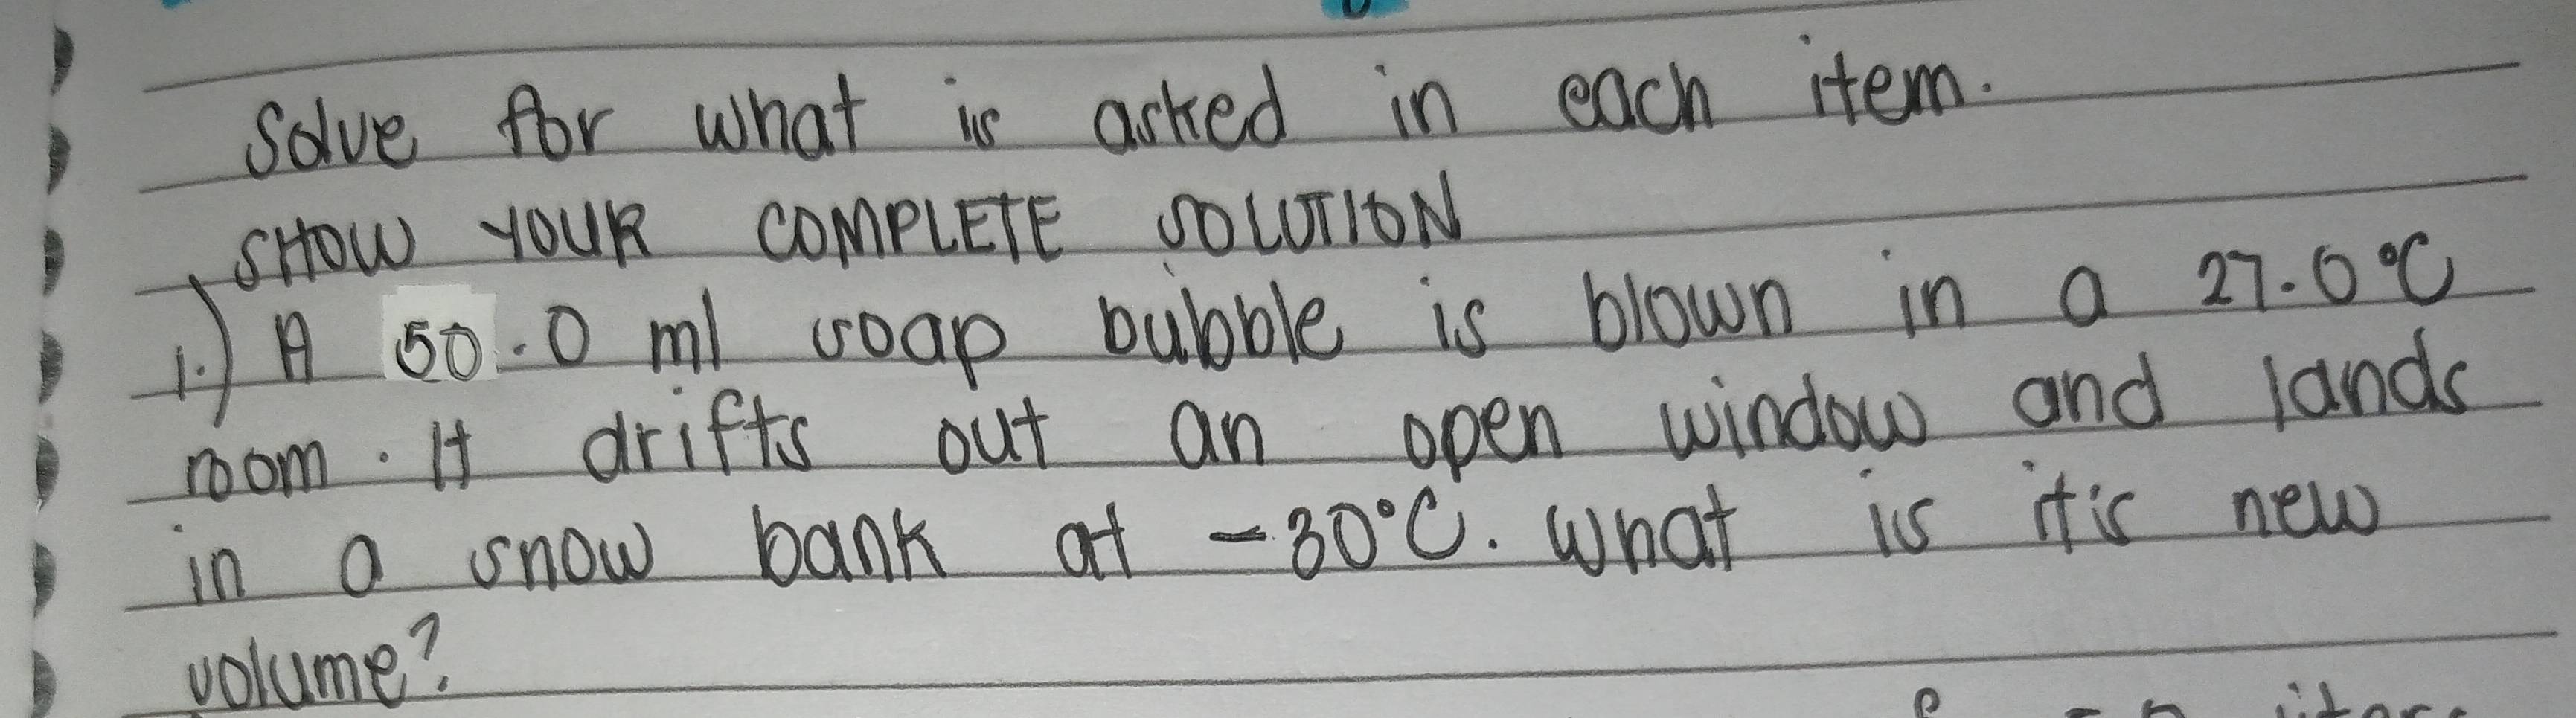 Solve for what is asked in each item.
SHOW YOUR COMPLETE SOLUTION
1.) A 50.0 ml soap bubble is blown in a 27.0°C
room. It drifts out an open window and lands
in a snow bank at -30°C. What is it's new
volume?